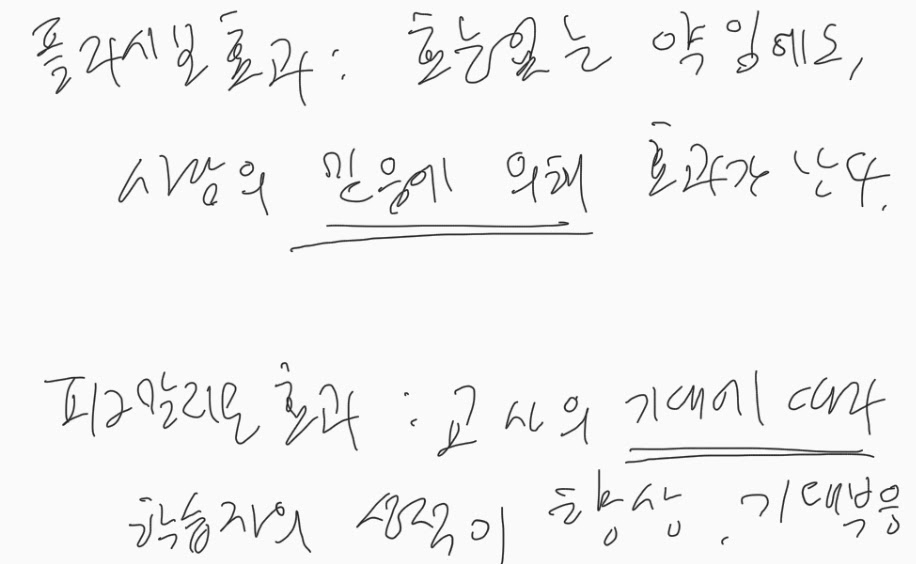 플라시보 효과 : 효능없는 약임에도,
사람의 믿음에 의해 효과가 난다.
피그말리온 효과 : 교사의 기대에 따라
학습자의 성적이 향상. 기대부응